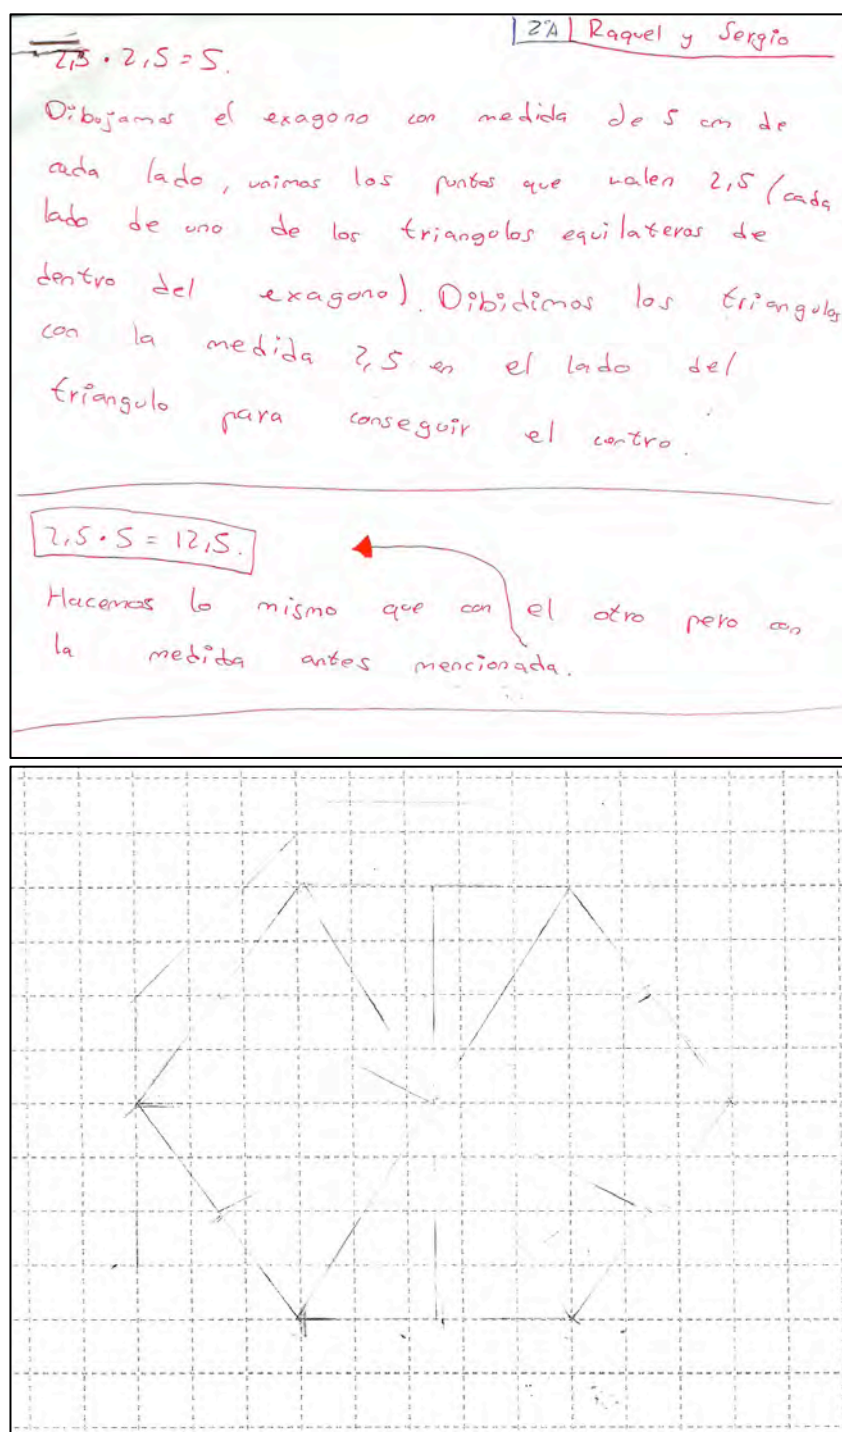 2ºA Raquel y Sergio
2,5 · 2,5 = 5.
Dibujamos el exagono con medida de 5 cm de
cada lado, unimos los puntos que valen 2,5 (cada
lado de uno de los triangulos equilateros de
dentro del exagono). Dibidimos los triangulos
con la medida 2,5 en el lado del
triangulo para conseguir el centro.
2,5 · 5 = 12,5.
Hacemos lo mismo que con el otro pero con
la medida antes mencionada.